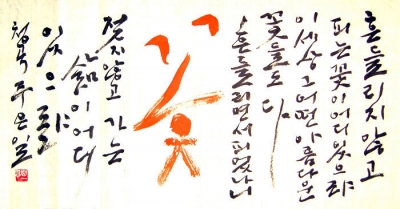 흔들리지 않고
피는 꽃이 어디 있으랴
이 세상 그 어떤 아름다운
꽃들도 다
흔들리면서 피었나니
꽃
젖지 않고 가는
삶이 어디
있으랴